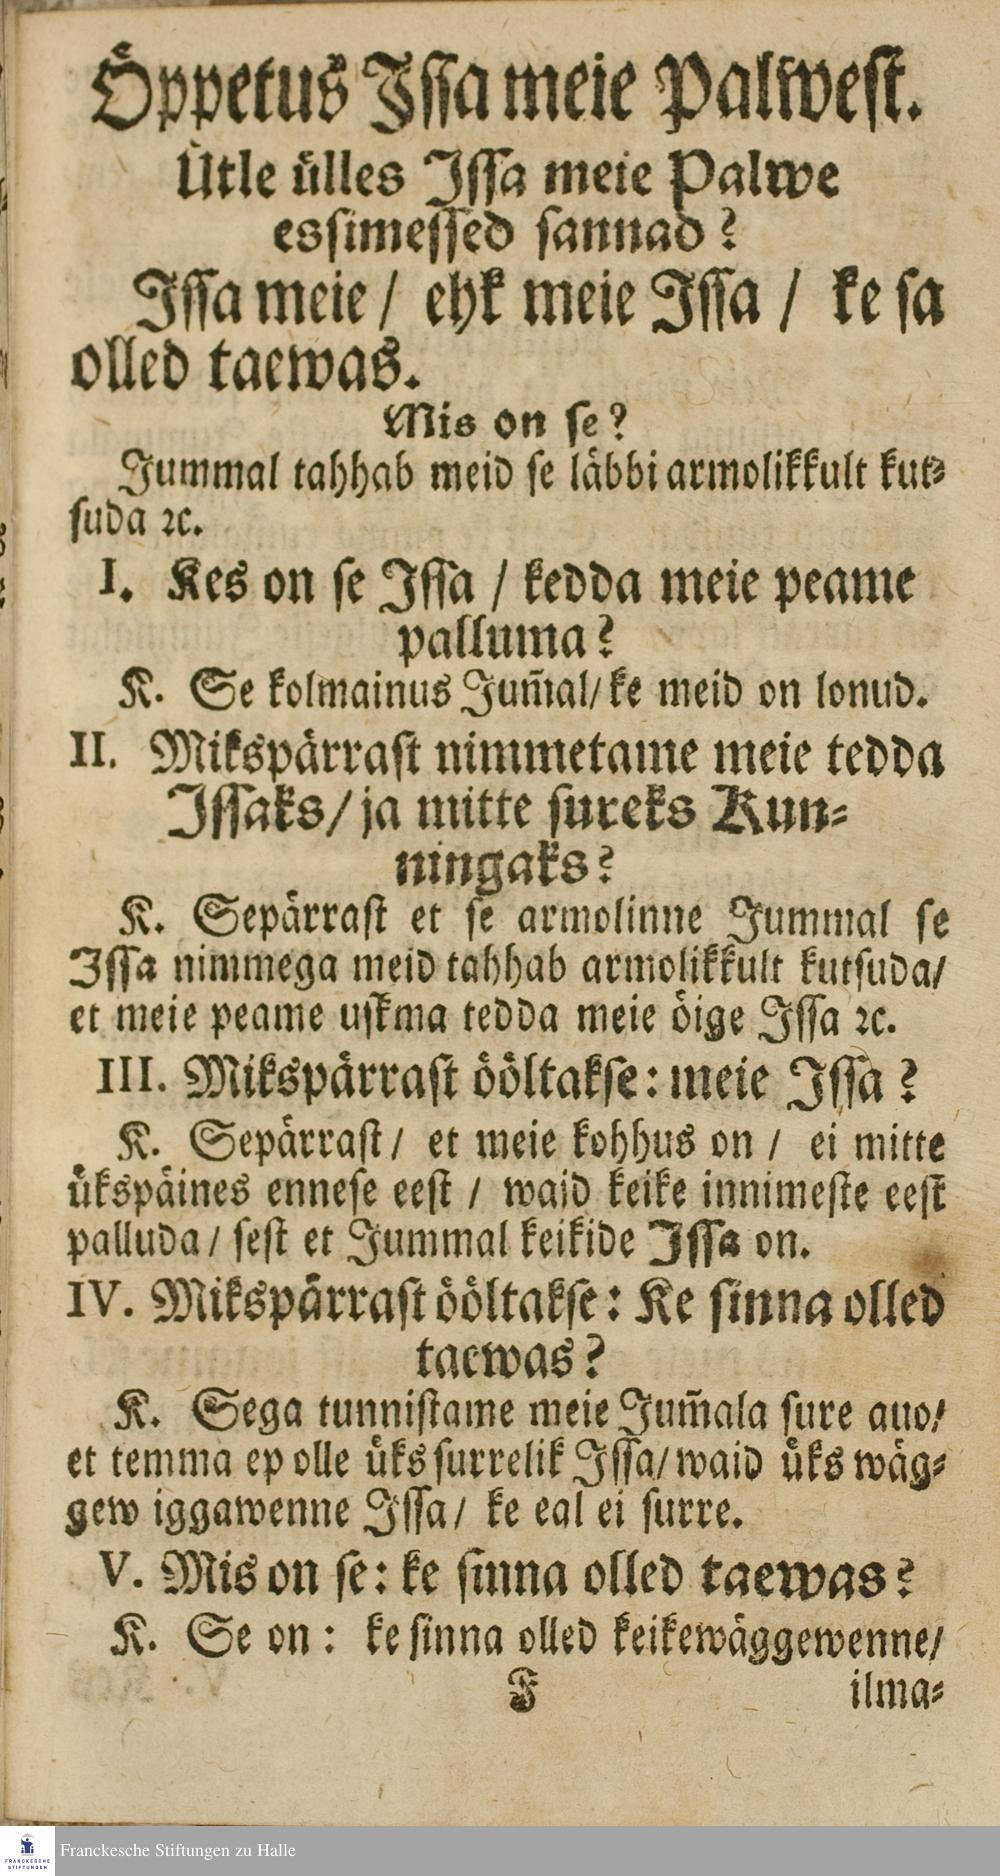 Öppetus Issa meie Palwest.
Ütle ülles Issa meie Palwe
essimessed sannad?
Issa meie / ehk meie Issa / ke sa
olled taewas.
Mis on se?
Jummal tahhab meid se läbbi armolikkult kut⸗
suda ꝛc.
I. Kes on se Issa / kedda meie peame
palluma?
K. Se kolmainus Jum̃al/ ke meid on lonud.
II. Mikspärrast nimmetame meie tedda
Issaks/ ja mitte sureks Kun⸗
ningaks?
K. Sepärrast et se armolinne Jummal se
Issa nimmega meid tahhab armolikkult kutsuda/
et meie peame uskma tedda meie öige Issa ꝛc.
III. Mikspärrast ööltakse: meie Issa?
K. Sepärrast / et meie kohhus on / ei mitte
ükspäines ennese eest / waid keike innimeste eest
palluda / sest et Jummal keikide Issa on.
IV. Mikspärrast ööltakse: Ke sinna olled
taewas?
K. Sega tunnistame meie Jum̃ala sure auo/
et temma ep olle üks surrelik Issa/ waid üks wäg⸗
gew iggawenne Issa/ ke eal ei surre.
V. Mis on se: ke sinna olled taewas?
K. Se on: ke sinna olled keikewäggewenne/
F ilma⸗
FRANCKESCHE STIFTUNGEN
Franckesche Stiftungen zu Halle